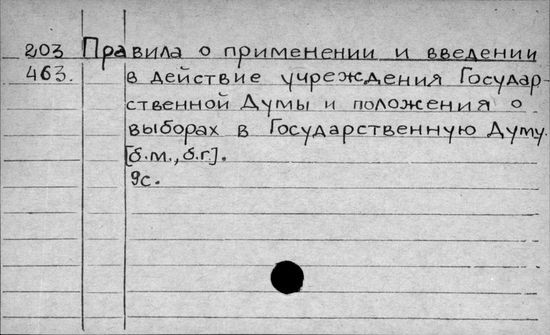 203 Правила о применении и введении
463. в действие учреждения Государ-
ственной Думы и положения о
выборах в Государственную Думу.
[б.м., б.г.].
9с.